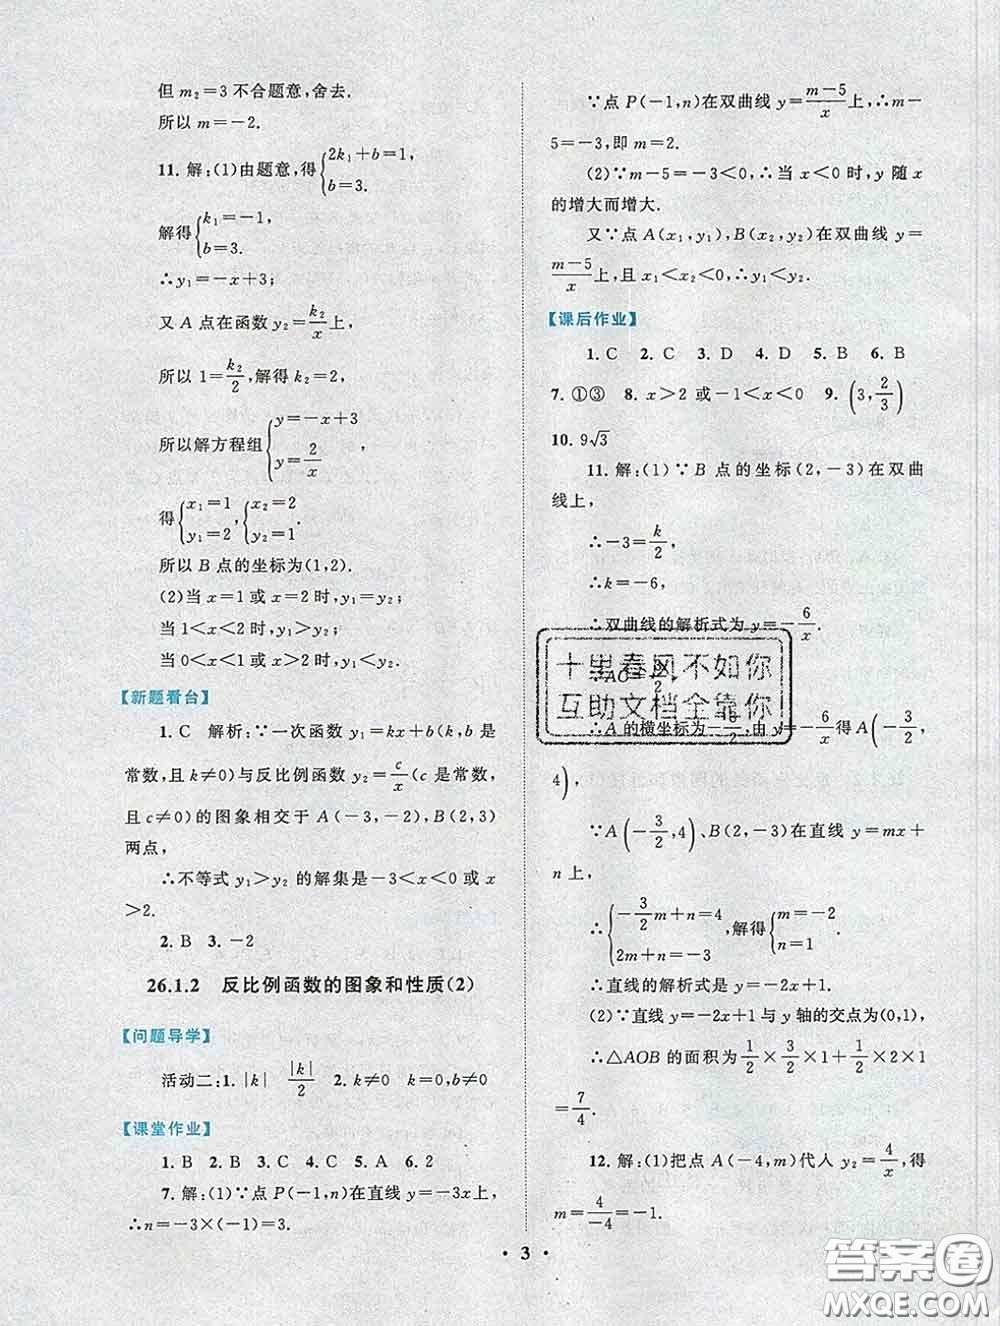 但 m₂=3 不合题意,舍去.
所以 m=-2.
11. 解:(1)由题意,得{2k₁+b=1, b=3.
解得{k₁=-1, b=3.
∴y₁=-x+3;
又 A 点在函数 y₂=k₂/x 上,
所以 1=k₂/2,解得 k₂=2,
所以解方程组{y=-x+3 y=2/x ,
得{x₁=1 y₁=2,{x₂=2 y₂=1.
所以 B 点的坐标为(1,2).
(2)当 x=1 或 x=2 时,y₁=y₂;
当 1<x<2 时,y₁>y₂;
当 0<x<1 或 x>2 时,y₁<y₂.
【新题看台】
1. C 解析:∵一次函数 y₁=kx+b(k,b 是
常数,且 k≠0)与反比例函数 y₂=c/x(c 是常数,
且 c≠0)的图象相交于 A(-3,-2),B(2,3)
两点,
∴不等式 y₁>y₂ 的解集是-3<x<0 或 x
>2.
2. B 3. -2
26.1.2 反比例函数的图象和性质(2)
【问题导学】
活动二:1. |k| |k|/2 2. k≠0 k<0,b≠0
【课堂作业】
1. B 2. B 3. C 4. C 5. A 6. 2
7. 解:(1)∵点 P(-1,n)在直线 y=-3x 上,
∴n=-3×(-1)=3.
∵点 P(-1,n)在双曲线 y=(m-5)/x 上,∴m-
5=-3,即 m=2.
(2)∵m-5=-3<0,∴当 x<0 时,y 随 x
的增大而增大.
又∵点 A(x₁,y₁),B(x₂,y₂)在双曲线 y=
(m-5)/x 上,且 x₁<x₂<0,∴y₁<y₂.
【课后作业】
1. C 2. C 3. D 4. D 5. B 6. B
7. ①③ 8. x>2 或-1<x<0 9. (3,2/3)
10. 9√3
11. 解:(1)∵B 点的坐标(2,-3)在双曲
线上,
∴-3=k/2,
∴k=-6,
∴双曲线的解析式为 y=-6/x.
∴A 的横坐标为 ,由 y=-6/x 得 A(-3/2,
4),
∵A(-3/2,4)、B(2,-3)在直线 y=mx+
n 上,
∴{-3/2m+n=4 2m+n=-3,解得{m=-2 n=1.
∴直线的解析式是 y=-2x+1.
(2)∵直线 y=-2x+1 与 y 轴的交点为(0,1),
∴△AOB 的面积为1/2×3/2×1+1/2×2×1
=7/4.
12. 解:(1)把点 A(-4,m)代入 y₂=4/x,得
m=4/-4=-1.
十里春风不如你
互助文档全靠你
· 3 ·
答案圈
MXQE.COM